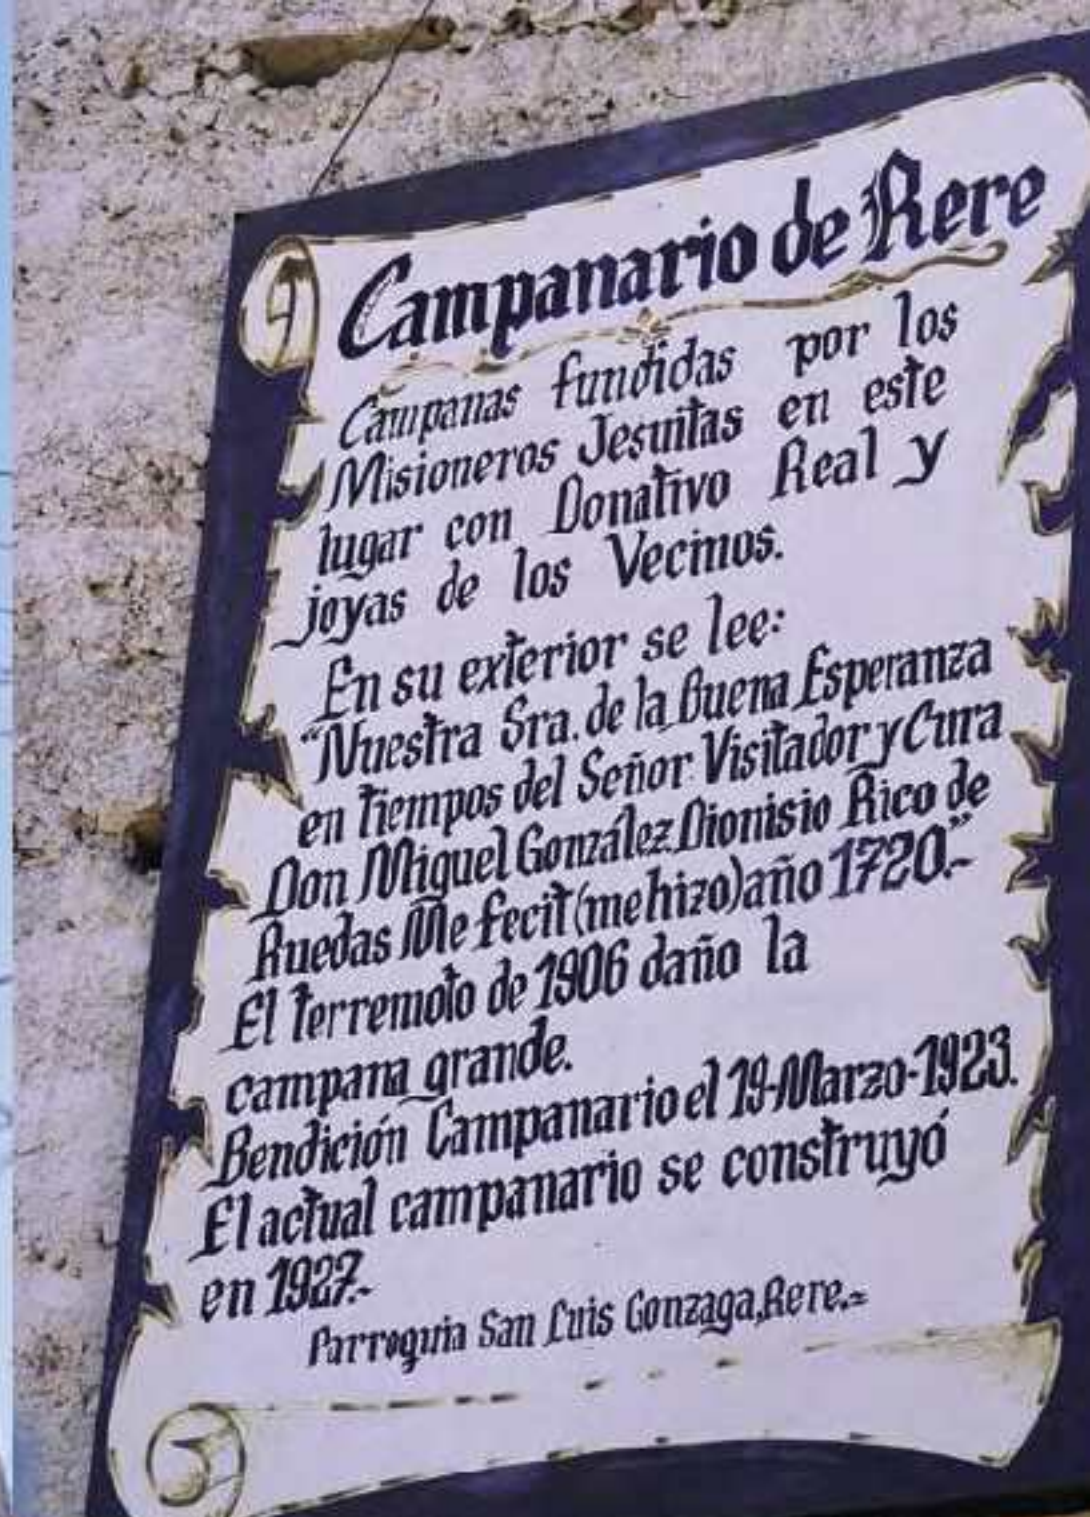 Campanario de Rere
Campanas fundidas por los
Misioneros Jesuitas en este
lugar con Donativo Real y
joyas de los Vecinos.
En su exterior se lee:
"Nuestra Sra. de la Buena Esperanza
en tiempos del Señor Visitador y Cura
Don Miguel González Dionisio Rico de
Ruedas Me fecit (me hizo) año 1720."-
El terremoto de 1906 daño la
campana grande.
Bendición Campanario el 19-Marzo-1923.
El actual campanario se construyó
en 1927.-
Parroquia San Luis Gonzaga, Rere.=